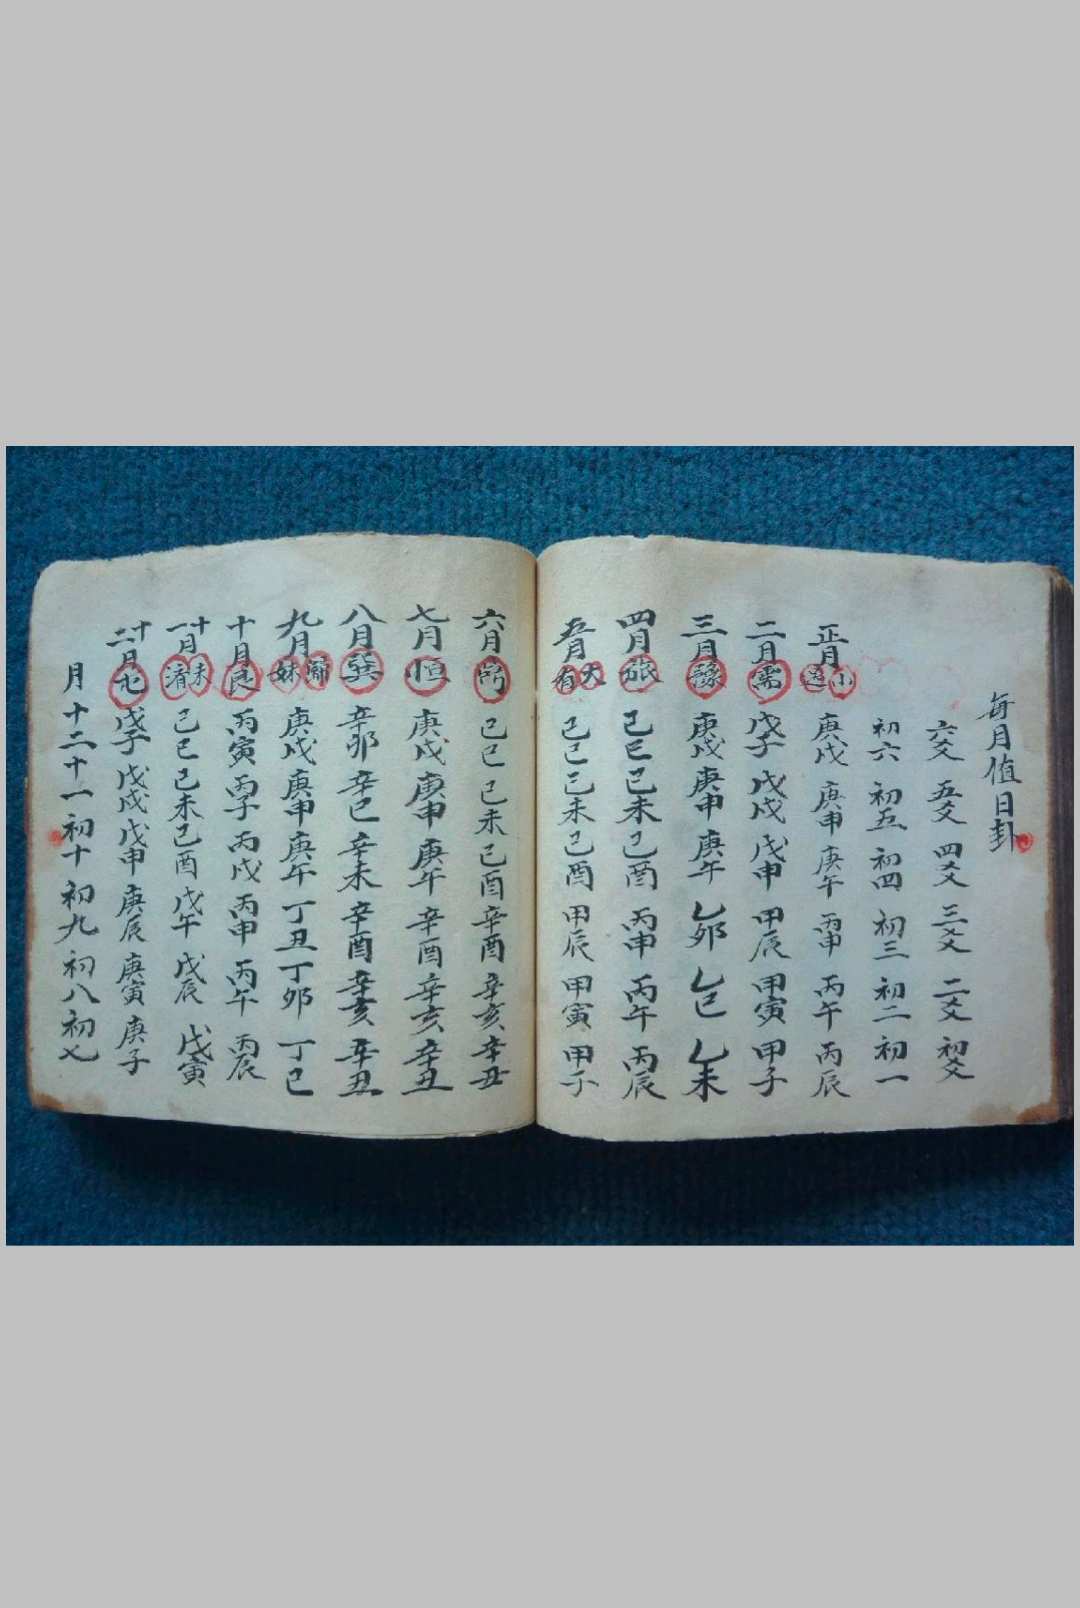 每月值日卦
六爻 五爻 四爻 三爻 二爻 初爻
初六 初五 初四 初三 初二 初一
正月 小過 庚戌 庚申 庚午 丙申 丙午 丙辰
二月 需 戊子 戊戌 戊申 甲辰 甲寅 甲子
三月 豫 庚戌 庚申 庚午 乙卯 乙巳 乙未
四月 旅 己巳 己未 己酉 丙申 丙午 丙辰
五月 大有 己巳 己未 己酉 甲辰 甲寅 甲子
六月 鼎 己巳 己未 己酉 辛酉 辛亥 辛丑
七月 恒 庚戌 庚申 庚午 辛酉 辛亥 辛丑
八月 巽 辛卯 辛巳 辛未 辛酉 辛亥 辛丑
九月 歸妹 庚戌 庚申 庚午 丁丑 丁卯 丁巳
十月 艮 丙寅 丙子 丙戌 丙申 丙午 丙辰
十一月 未濟 己巳 己未 己酉 戊午 戊辰 戊寅
十二月 屯 戊子 戊戌 戊申 庚辰 庚寅 庚子
月 十二 十一 初十 初九 初八 初七